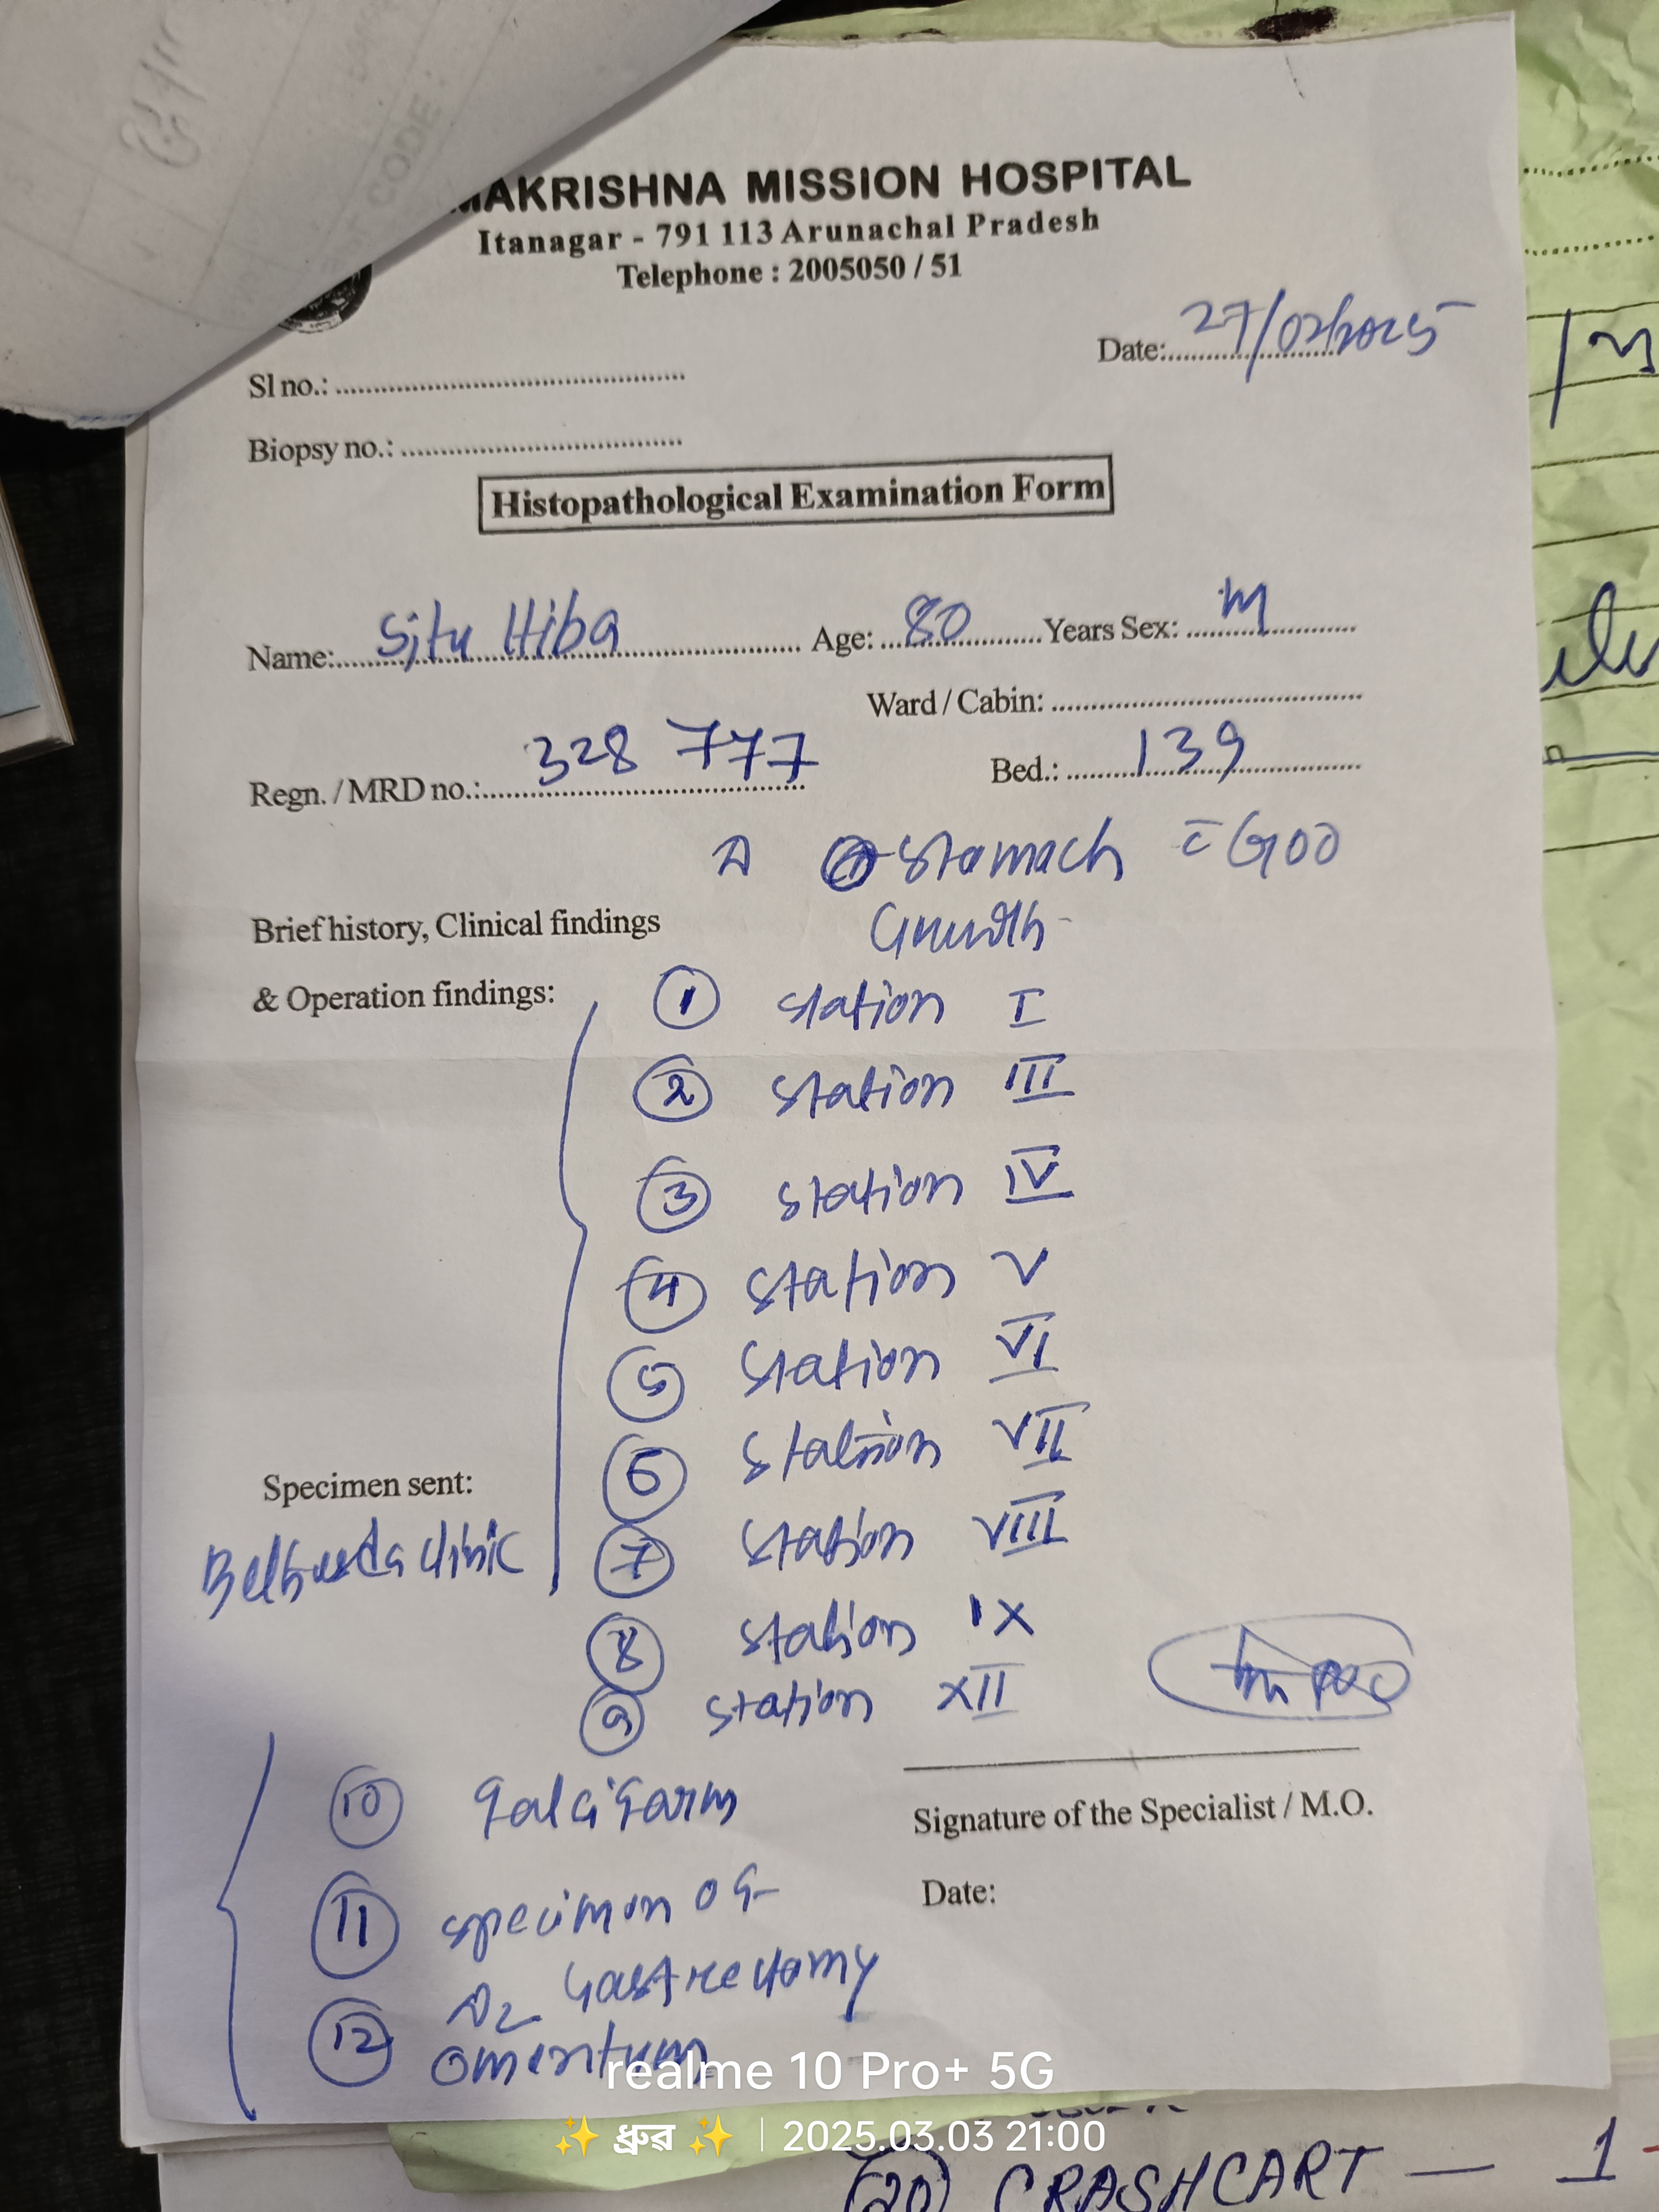 MAKRISHNA MISSION HOSPITAL
Itanagar - 791 113 Arunachal Pradesh
Telephone : 2005050 / 51
CODE :
Date: 27/02/2025
Sl no.:
Biopsy no.:
Histopathological Examination Form
Name: Situ Hiba Age: 80 Years Sex: M
Ward / Cabin:
Regn. / MRD no.: 328 777 Bed.: 139
stomach c̄ GOO
Brief history, Clinical findings
Growth
& Operation findings:
① station I
② station III
③ station IV
④ station V
⑤ station VI
⑥ station VII
Specimen sent:
⑦ station VIII
clinic
⑧ station IX
⑨ station XII
⑩ falciform
Signature of the Specialist / M.O.
⑪ specimen of
Date:
D2 Gastrectomy
⑫ omentum
realme 10 Pro+ 5G
✨ ধ্রুৱ ✨ | 2025.03.03 21:00
(20) CRASHCART — 1